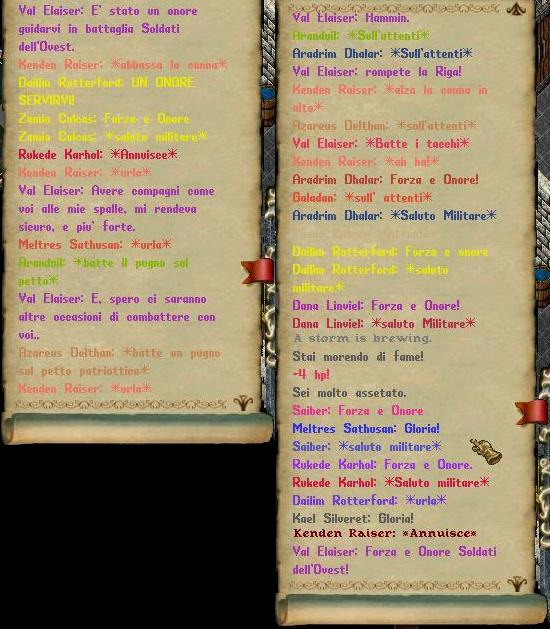 Val Elaiser: E' stato un onore
guidarvi in battaglia Soldati
dell'Ovest.
Kenden Raiser: *abbassa la canna*
Dailim Rotterford: UN ONORE
SERVIRVI!
Zamio Culcas: Forza e Onore
Zamio Culcas: *saluto militare*
Rukede Karhol: *Annuisce*
Kenden Raiser: *urla*
Val Elaiser: Avere compagni come
voi alle mie spalle, mi rendeva
sicuro, e piu' forte.
Meltres Sathusan: *urla*
Aranduil: *batte il pugno sul
petto*
Val Elaiser: E, spero ci saranno
altre occasioni di combattere con
voi..
Azareus Delthan: *batte un pugno
sul petto patriottico*
Kenden Raiser: *urla*
Val Elaiser: Hammin.
Aranduil: *Sull'attenti*
Aradrim Dhalar: *Sull'attenti*
Val Elaiser: rompete la Riga!
Kenden Raiser: *alza la canna in
alto*
Azareus Delthan: *sull'attenti*
Val Elaiser: *Batte i tacchi*
Kenden Raiser: *ah ha!*
Aradrim Dhalar: Forza e Onore!
Galadan: *sull' attenti*
Aradrim Dhalar: *Saluto Militare*
Dailim Rotterford: Forza e onore
Dailim Rotterford: *saluto
militare*
Dana Linviel: Forza e Onore!
Dana Linviel: *saluto Militare*
A storm is brewing.
Stai morendo di fame!
-4 hp!
Sei molto assetato.
Saiber: Forza e Onore
Meltres Sathusan: Gloria!
Saiber: *saluto militare*
Rukede Karhol: Forza e Onore.
Rukede Karhol: *Saluto militare*
Dailim Rotterford: *urla*
Kael Silveret: Gloria!
Kenden Raiser: *Annuisce*
Val Elaiser: Forza e Onore Soldati
dell'Ovest!